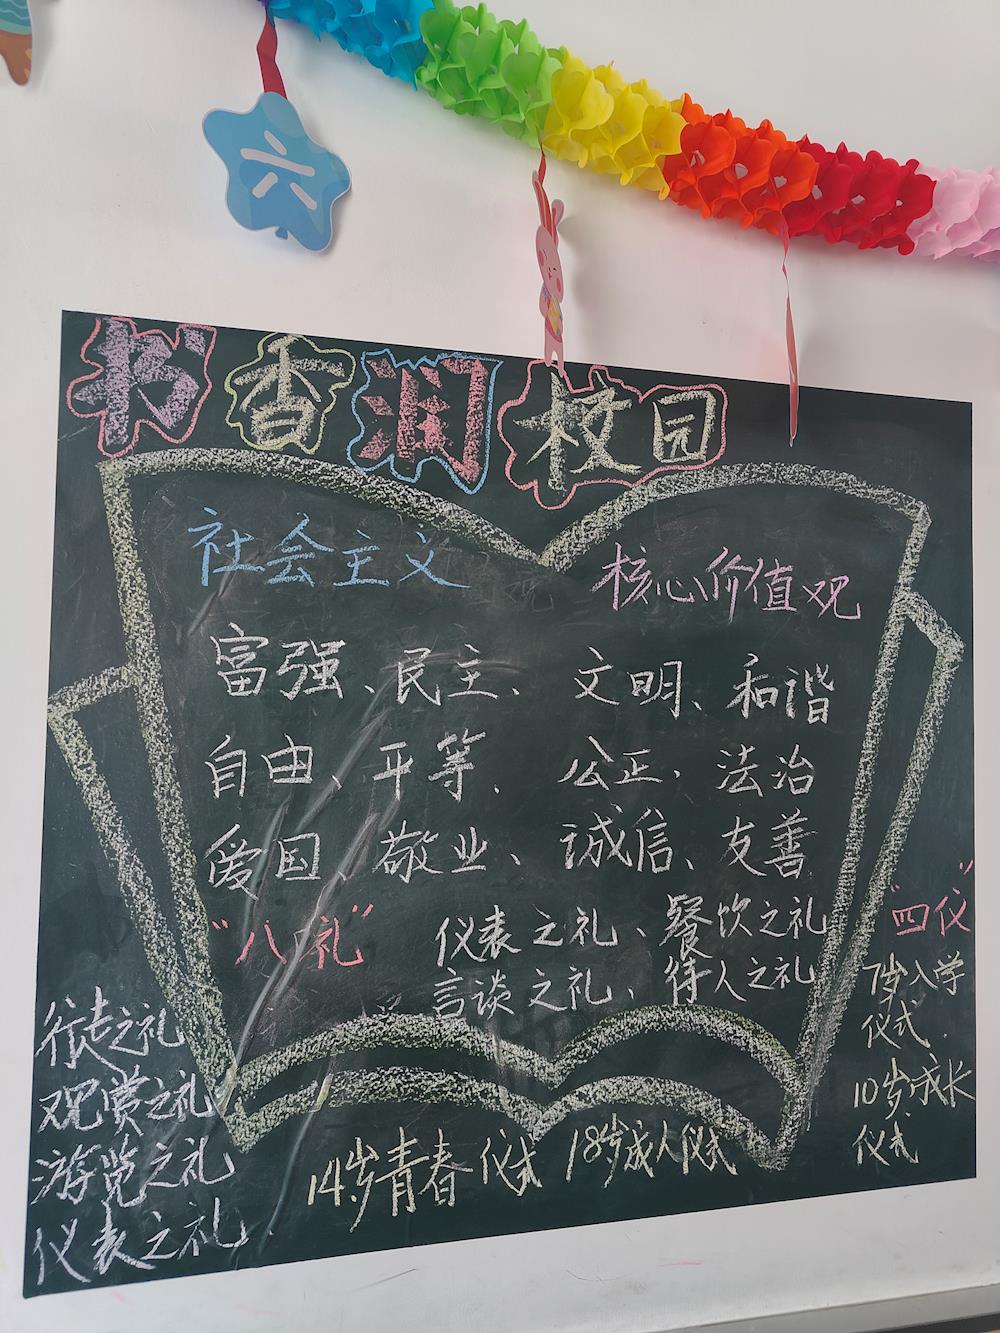 六
书香润校园
社会主义 核心价值观
富强、民主、文明、和谐
自由、平等、公正、法治
爱国、敬业、诚信、友善
“八礼”
仪表之礼、餐饮之礼
言谈之礼、待人之礼
行走之礼
观赏之礼
游览之礼
仪表之礼
“四仪”
7岁入学
仪式.
10岁成长
仪式
14岁青春仪式 18岁成人仪式